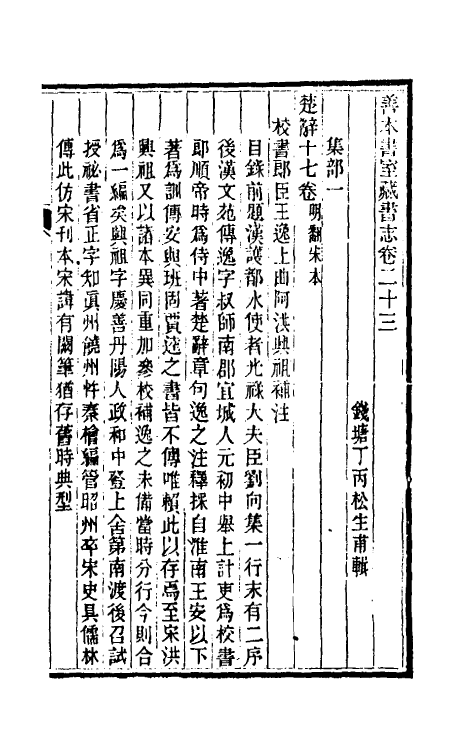 善本書室藏書志卷二十三
錢塘丁丙松生甫輯
集部一
楚辭十七卷 明翻宋本
校書郎臣王逸上曲阿洪興祖補注
目錄前題漢護都水使者光祿大夫臣劉向集一行末有二序
後漢文苑傳逸字叔師南郡宜城人元初中舉上計吏為校書
郎順帝時為侍中著楚辭章句逸之注釋採自淮南王安以下
著為訓傳安與班固賈逵之書皆不傳唯賴此以存焉至宋洪
興祖又以諸本異同重加參校補逸之未備當時分行今則合
為一編矣興祖字慶善丹陽人政和中登上舍第南渡後召試
授祕書省正字知眞州饒州忤秦檜編管昭州卒宋史具儒林
傳此仿宋刊本宋諱有闕筆猶存舊時典型